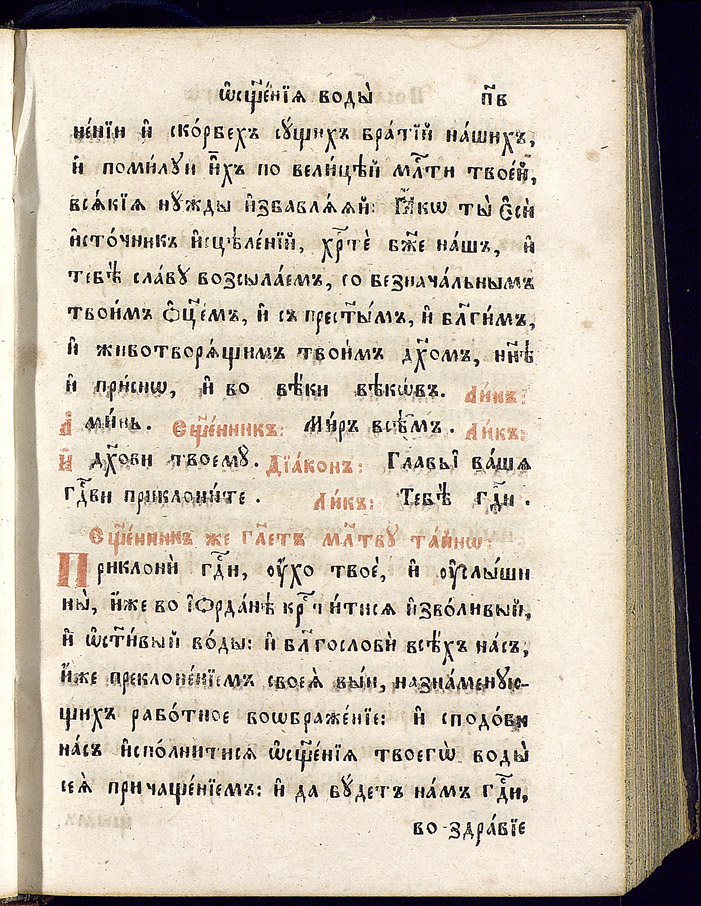 ѡ҆сщ҃е́нїѧ воды̀ п҃в
не́нїи и҆ ско́рбехъ сꙋ́щихъ бра́тїй на́шихъ,
и҆ поми́лꙋи и҆̀хъ по вели́цѣй млⷭ҇ти твое́й,
всѧ́кїѧ нꙋ́жды и҆збавлѧ́ѧй: Ꙗ҆́кѡ ты̀ є҆сѝ
и҆сто́чникъ и҆сцѣле́нїй, хрⷭ҇тѐ бж҃е на́шъ, и҆
тебѣ̀ сла́вꙋ возсыла́емъ, со безнача́льнымъ
твои́мъ ѻ҆ц҃е́мъ, и҆ съ прест҃ы́мъ, и҆ бл҃ги́мъ,
и҆ животворѧ́щимъ твои́мъ дх҃омъ, нн҃ѣ
и҆ при́снѡ, и҆ во вѣ́ки вѣкѡ́въ. Ли́къ:
А҆ми́нь. Сщ҃е́нникъ: Ми́ръ всѣ̑мъ. Ли́къ:
И҆ дх҃ови твоемꙋ̀. Дїа́конъ: Главы̑ ва́шѧ
гдⷭ҇ви приклони́те. Ли́къ: Тебѣ̀ гдⷭ҇и.
Сщ҃е́нникъ же гл҃етъ мл҃твꙋ та́йнѡ:
Приклонѝ гдⷭ҇и, ᲂу҆́хо твоѐ, и҆ ᲂу҆слы́ши
ны̀, и҆́же во і҆ѻрда́нѣ крⷭ҇ти́тисѧ и҆зво́ливый,
и҆ ѡ҆ст҃и́вый во́ды: и҆ бл҃гословѝ всѣ́хъ на́съ,
и҆̀же преклоне́нїемъ своеѧ̀ вы́и, назна́менꙋю-
щихъ рабо́тное воѡбраже́нїе: и҆ сподо́би
на́съ и҆спо́лнитисѧ ѡ҆сщ҃е́нїѧ твоегѡ̀ воды̀
сеѧ̀ причаще́нїемъ: и҆ да бꙋ́детъ на́мъ гдⷭ҇и,
во здра́вїе